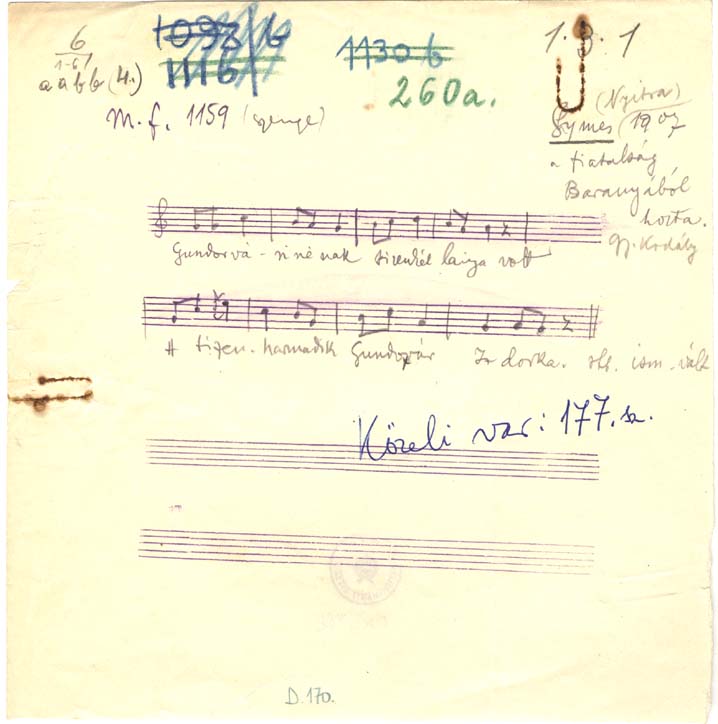 6
1-6
a a b b (4.)
1093/b
1116
1130 b
260a.
M. f. 1159 (gyenge)
1. 3. 1
(Nyitra)
Gymes 1907
a fiatalság
Baranyából
hozta.
gy. Kodály
Gundorvá - ri né nak tizenkét lánya volt
A tizen - harmadik Gundorvár Is dorka. stb. ism. vált
Közeli var: 177. sz.
D. 170.